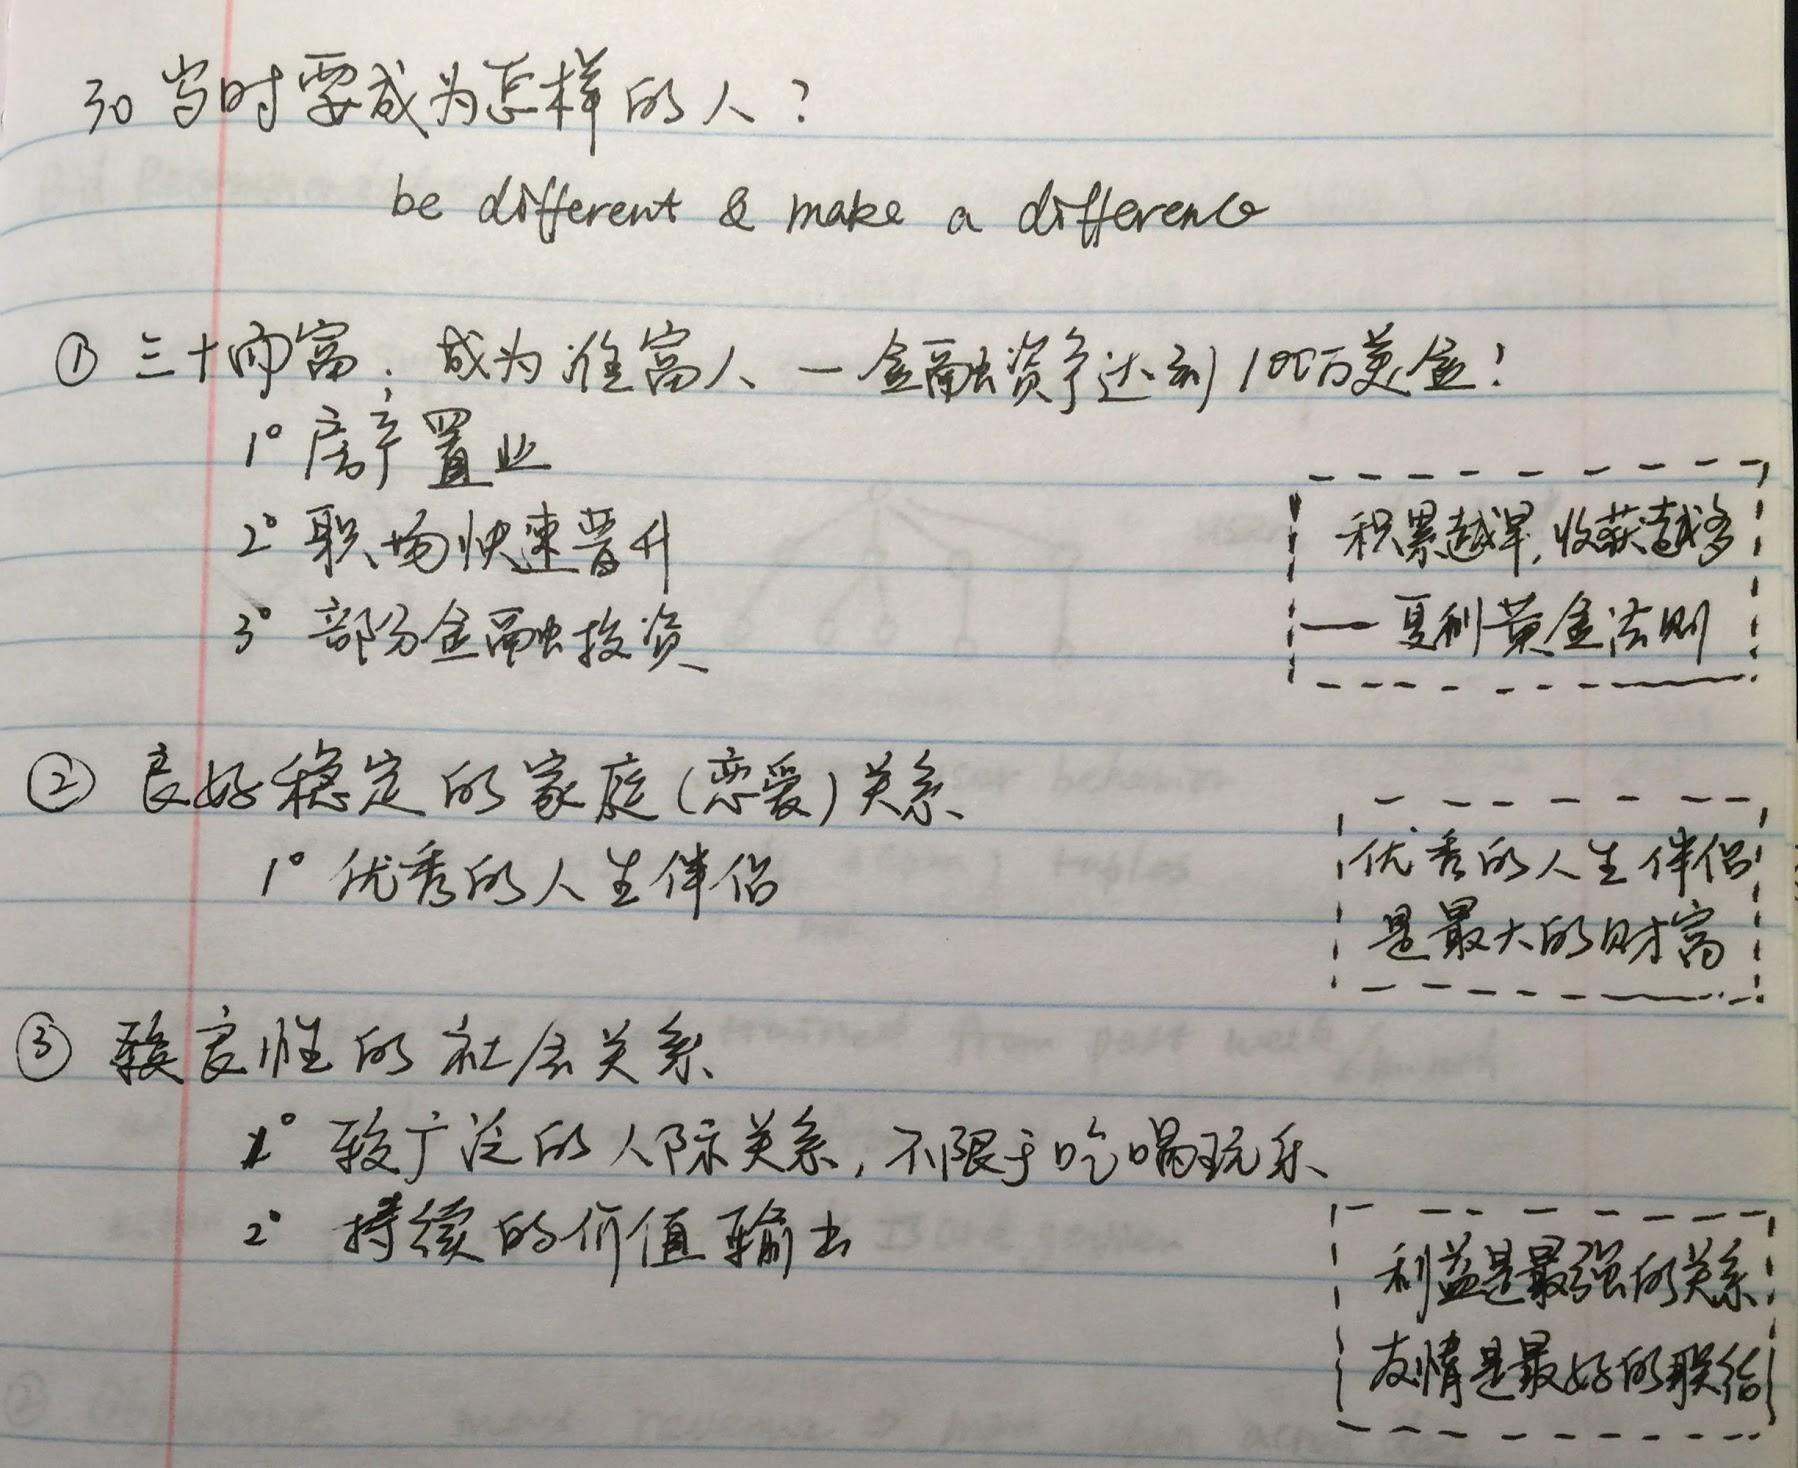 30岁时要成为怎样的人？
be different & make a difference
① 三十而富：成为准富人 — 金融资产达到100万美金！
1° 房产置业
2° 职场快速晋升
3° 部分金融投资
积累越早，收获越多
— 复利黄金法则
② 良好稳定的家庭（恋爱）关系
1° 优秀的人生伴侣
优秀的人生伴侣
是最大的财富
③ 较良性的社会关系
1° 较广泛的人际关系，不限于吃喝玩乐
2° 持续的价值输出
利益是最强的关系
友情是最好的联结